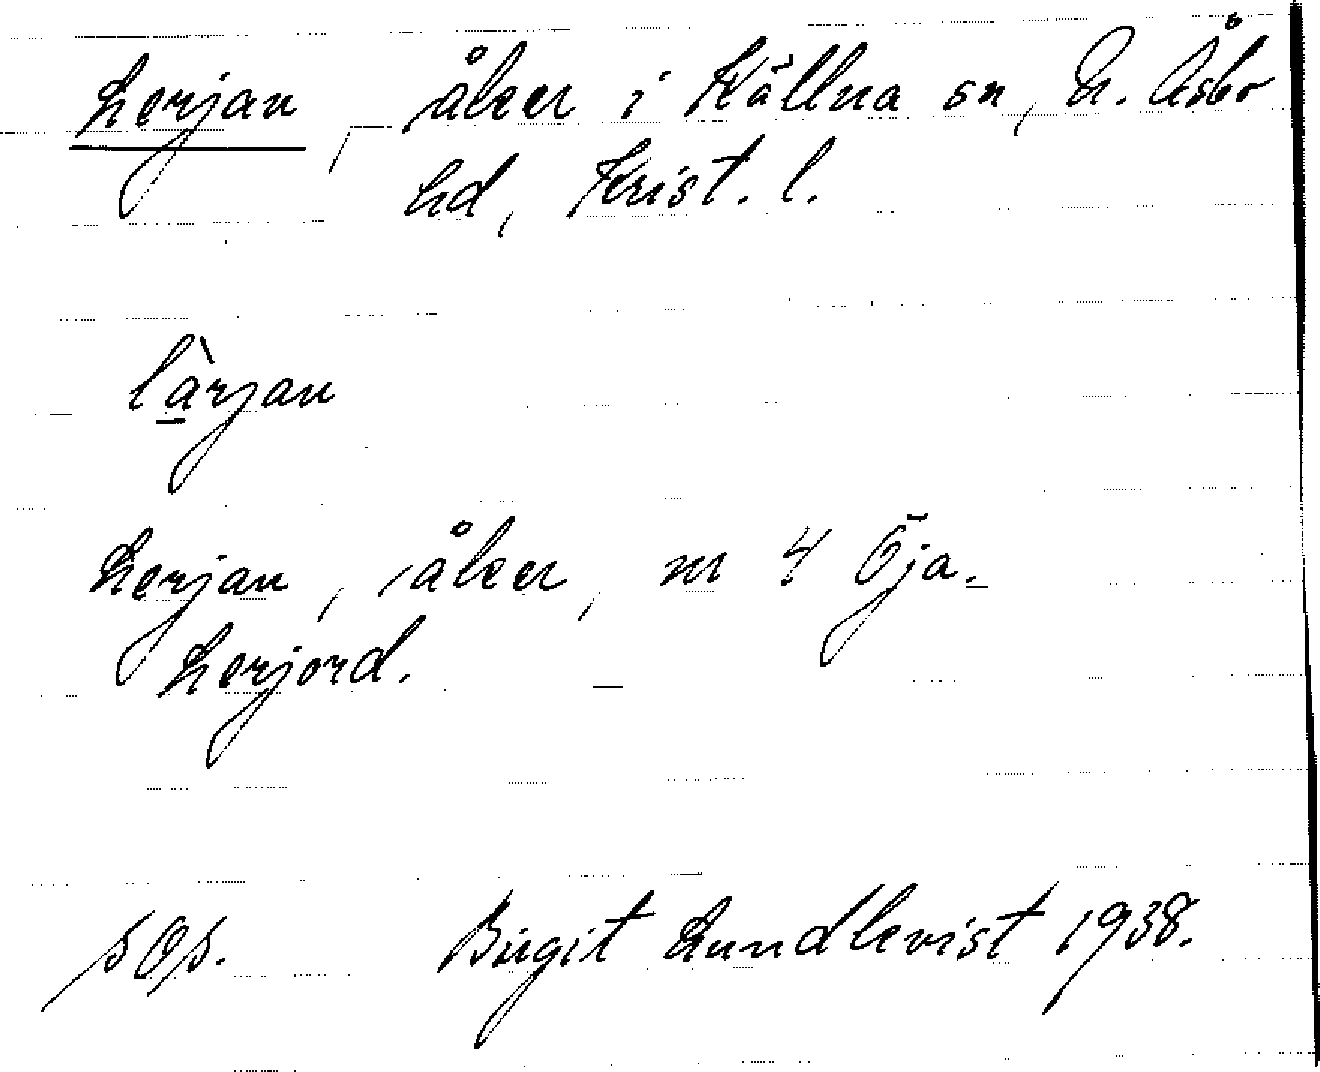 Lerjan, åker i Källna sn, N. Åsbo
hd, Krist. l.
làrjan
Lerjan, åker, nr 4 Öja.
Lerjord.
Birgit Lundkvist 1938.